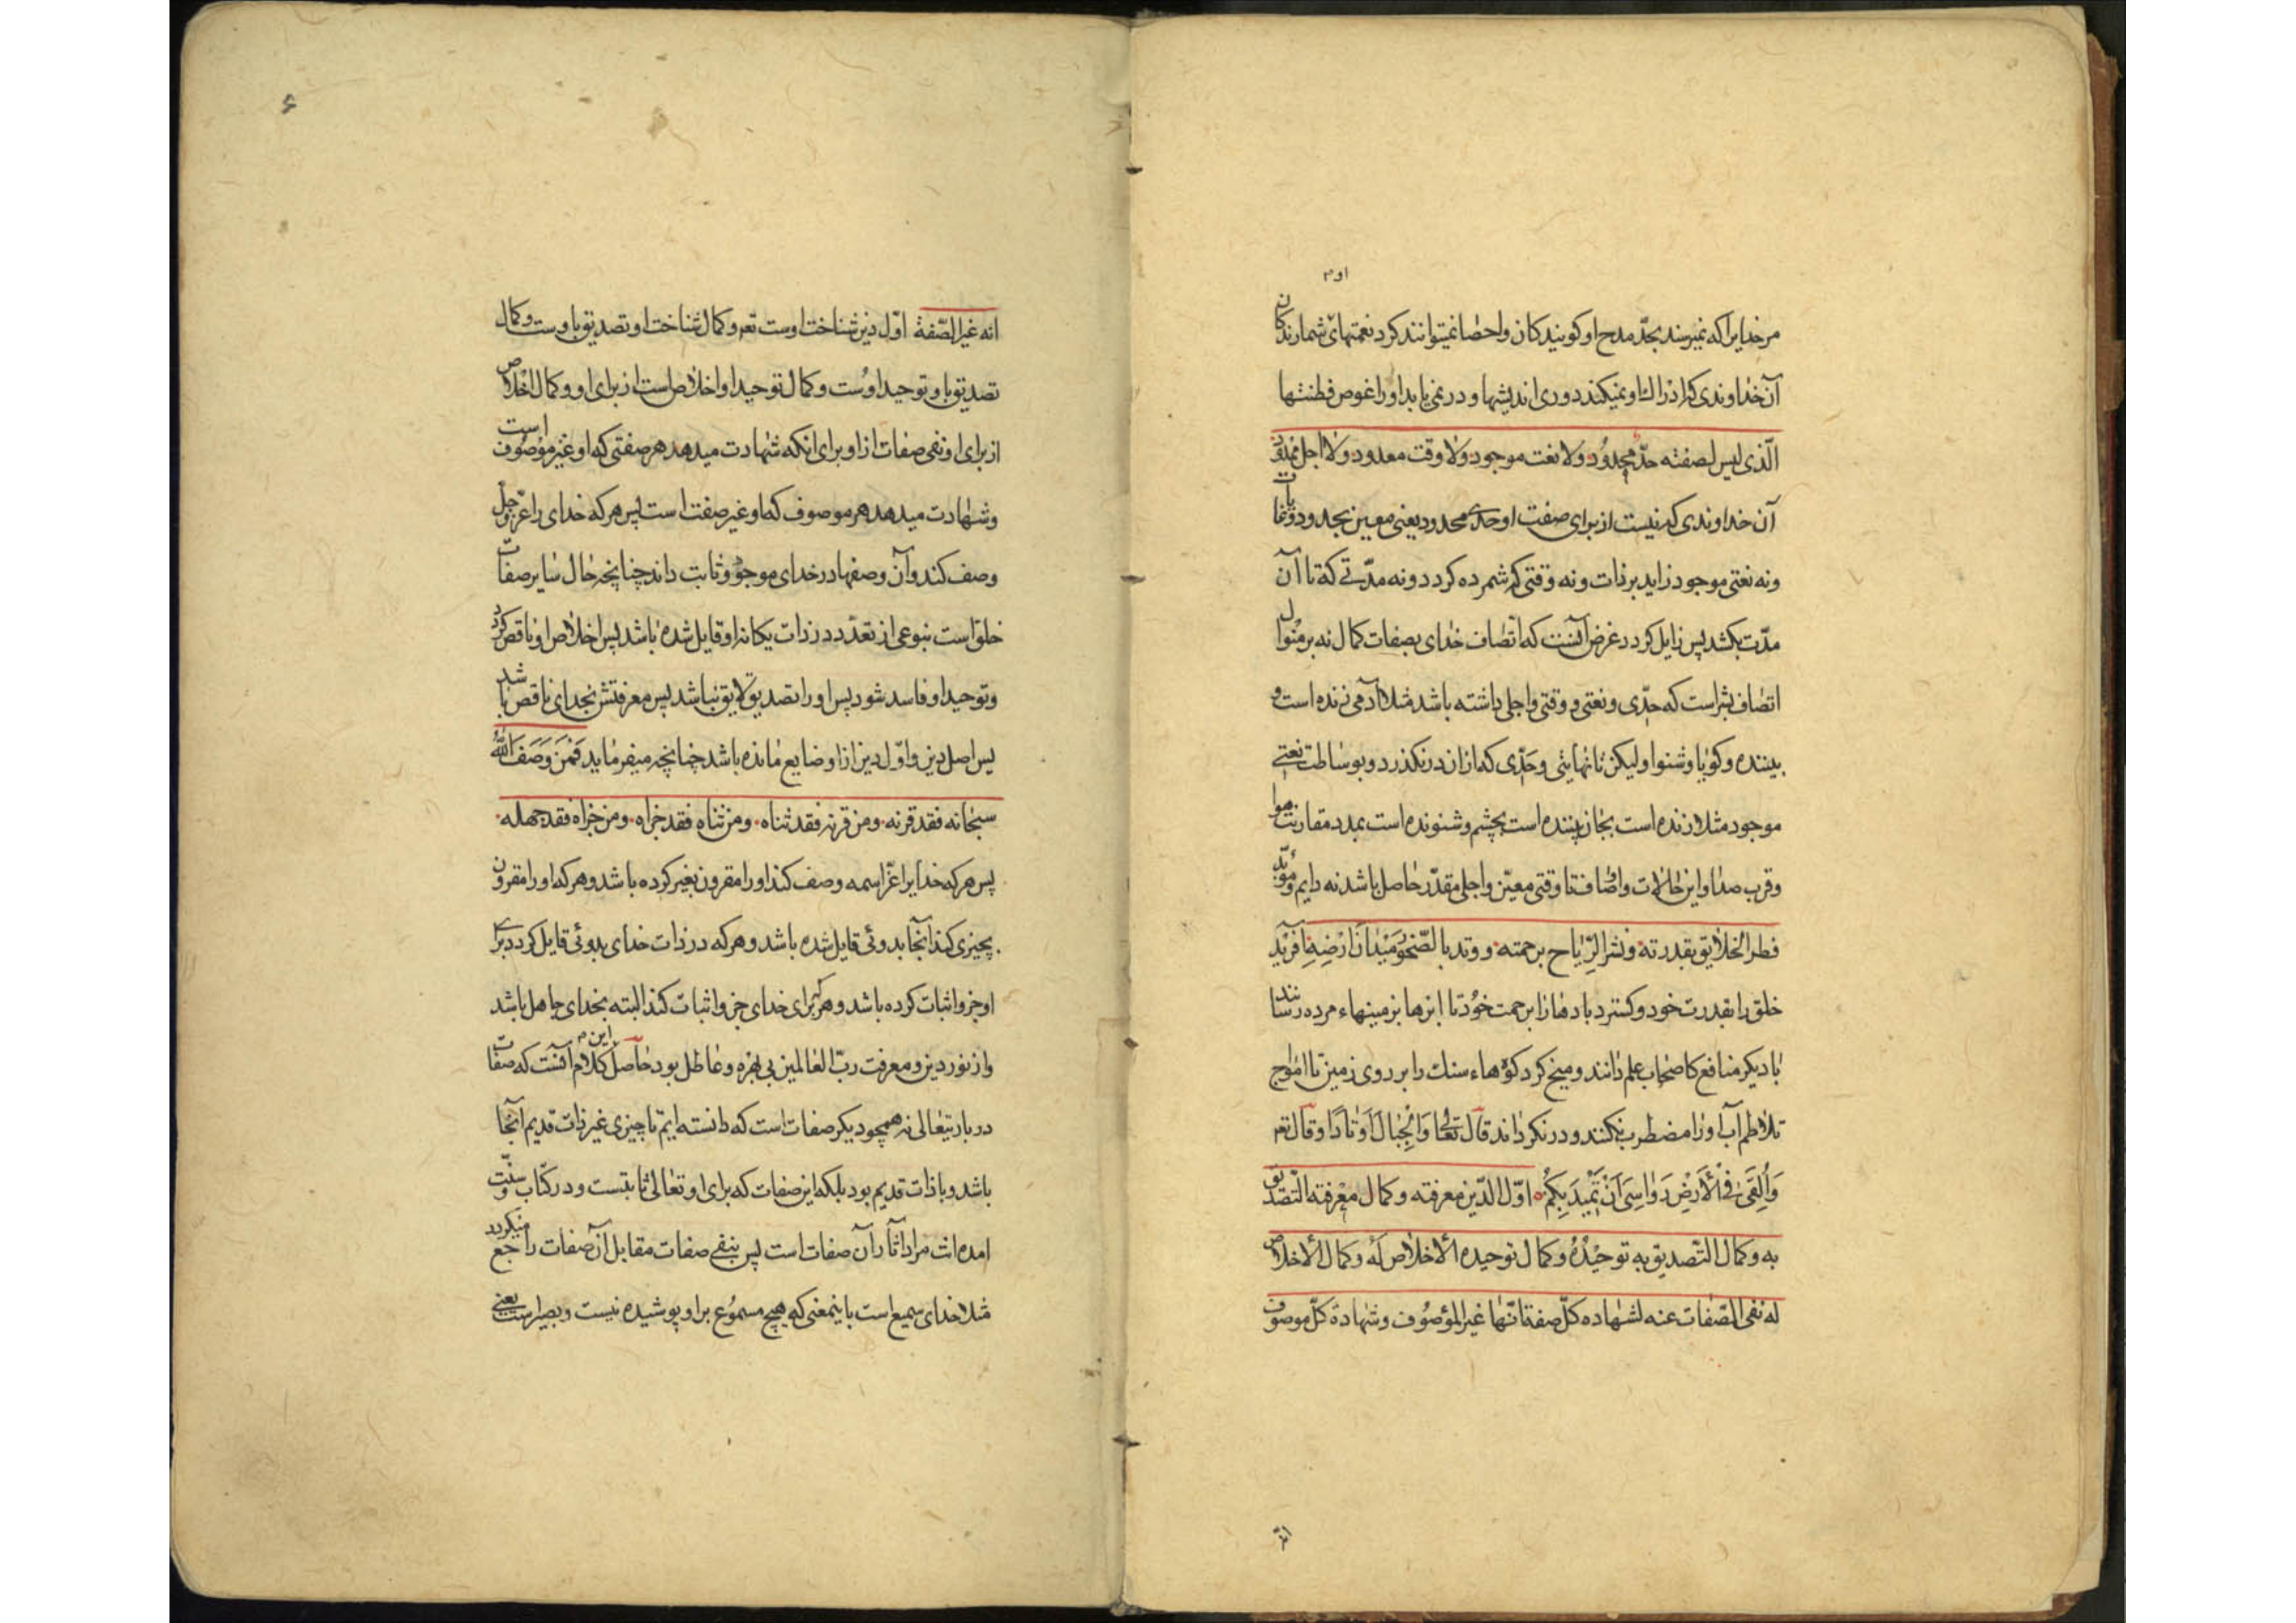 او م
مر خدایرا که نمیرسند بحدّ مدح او کویندکان واحصا نمیتوانند کرد نعمتهای شمارندکان
آن خداوندی که ادراك او نمیکند دوری اندیشها و در نمی یابد او را غوص فطنتها
الّذی لیس لصفته حدّ محدود ولا نعت موجود ولا وقت معدود ولا اجل ممدود
آن خداوندی که نیست از برای صفت او حدی محدود یعنی معین بحدود
ونه نعتی موجود زاید بر ذات ونه وقتی که شمرده کردد ونه مدّتی که تا آن
مدّت بکشد پس زایل کردد غرض آنست که اتّصاف خدای بصفات کمال نه بر منوال
اتصاف بشر است که حدّی ونعتی و وقتی واجلی داشته باشد مثلا آدمی زنده است و
بیننده وکویا وشنوا ولیکن تا نهایتی وحدّی که از ان درنکذرد وبوساطت نعتی
موجود مثلا زنده است بجان بیننده است بچشم وشنونده است بمدد مقارنت هوا
وقرب صدا واین حالات واضافت تا وقتی معیّن واجلی مقدّر حاصل باشد نه دایم ومؤبّد
فطر الخلایق بقدرته ونشر الرّیاح برحمته ووتد بالصّخور میدان ارضه آفرید
خلق را بقدرت خود وکسترد بادها را برحمت خود تا ابرها بزمینهاء مرده رسانند
با دیکر منافع که اصحاب علم دانند ومیخ کرد کوههاء سنك را بر روی زمین تا امواج
تلاطم آب او را مضطرب نکنند ودر نکرداند قال تعالی وَالْجِبَالَ اَوْتَادًا وقال تعه
وَاَلْقَی فِی الْاَرْضِ رَوَاسِیَ اَنْ تَمِیدَ بِکُمْ اوّل الدّین معرفته وکمال معرفته التّصدیق
به وکمال التّصدیق به توحیدُهُ وکمال توحیده الاخلاص لَهُ وکمال الاخلاص
له نفی الصّفات عنه لشهاده کلّ صفة انّها غیر الموصوف وشهادة کلّ موصوف
انّه
۶
انه غیر الصّفة اوّل دین شناخت اوست تعه وکمال شناخت او تصدیق باوست وکمال
تصدیق باو توحید اوست وکمال توحید او اخلاص است از برای او وکمال اخلاص
از برای او نفی صفات از او برای انکه شهادت میدهد هر صفتی که او غیر موصوف است
وشهادت میدهد هر موصوف که او غیر صفت است پس هر که خدای را عزّ وجلّ
وصف کند وآن وصفها در خدای موجود وثابت داند چنانچه حال سایر صفات
خلق است بنوعی از تعدّد در ذات یکانه او قایل شده باشد پس اخلاص او ناقص کردد
وتوحید او فاسد شود پس او را تصدیق لایق نباشد پس معرفتش بخدای ناقص باشد
پس اصل دین واوّل دین از او ضایع مانده باشد چنانچه میفرماید فَمَنْ وَصَفَ اللّٰهَ
سبحانه فقد قرنه ومن قرنه فقد ثناه ومن ثناه فقد جزاه ومن جزاه فقد جهله
پس هر که خدایرا عزّ اسمه وصف کند او را مقرون بغیر کرده باشد وهر که او را مقرون
بچیزی کند آنجا بدوئی قایل شده باشد وهر که در ذات خدای بدوئی قایل کردد برای
او جزو اثبات کرده باشد وهر که برای خدای جزو اثبات کند البته بخدای جاهل باشد
واز نور دین ومعرفت ربّ العالمین بی بهره وعاطل بود حاصل این کلام آنست که صفات
در باریتعالی نه همچو دیکر صفات است که دانسته ایم تا چیزی غیر ذات قدیم آنجا
باشد وبا ذات قدیم بود بلکه این صفات که برای او تعالی ثابتست ودر کتاب وسنّت
امده است مراد اثار آن صفات است پس بنفی صفات مقابل آن صفات راجع میکردد
مثلا خدای سمیع است باینمعنی که هیچ مسموع بر او پوشیده نیست وبصیر است یعنی